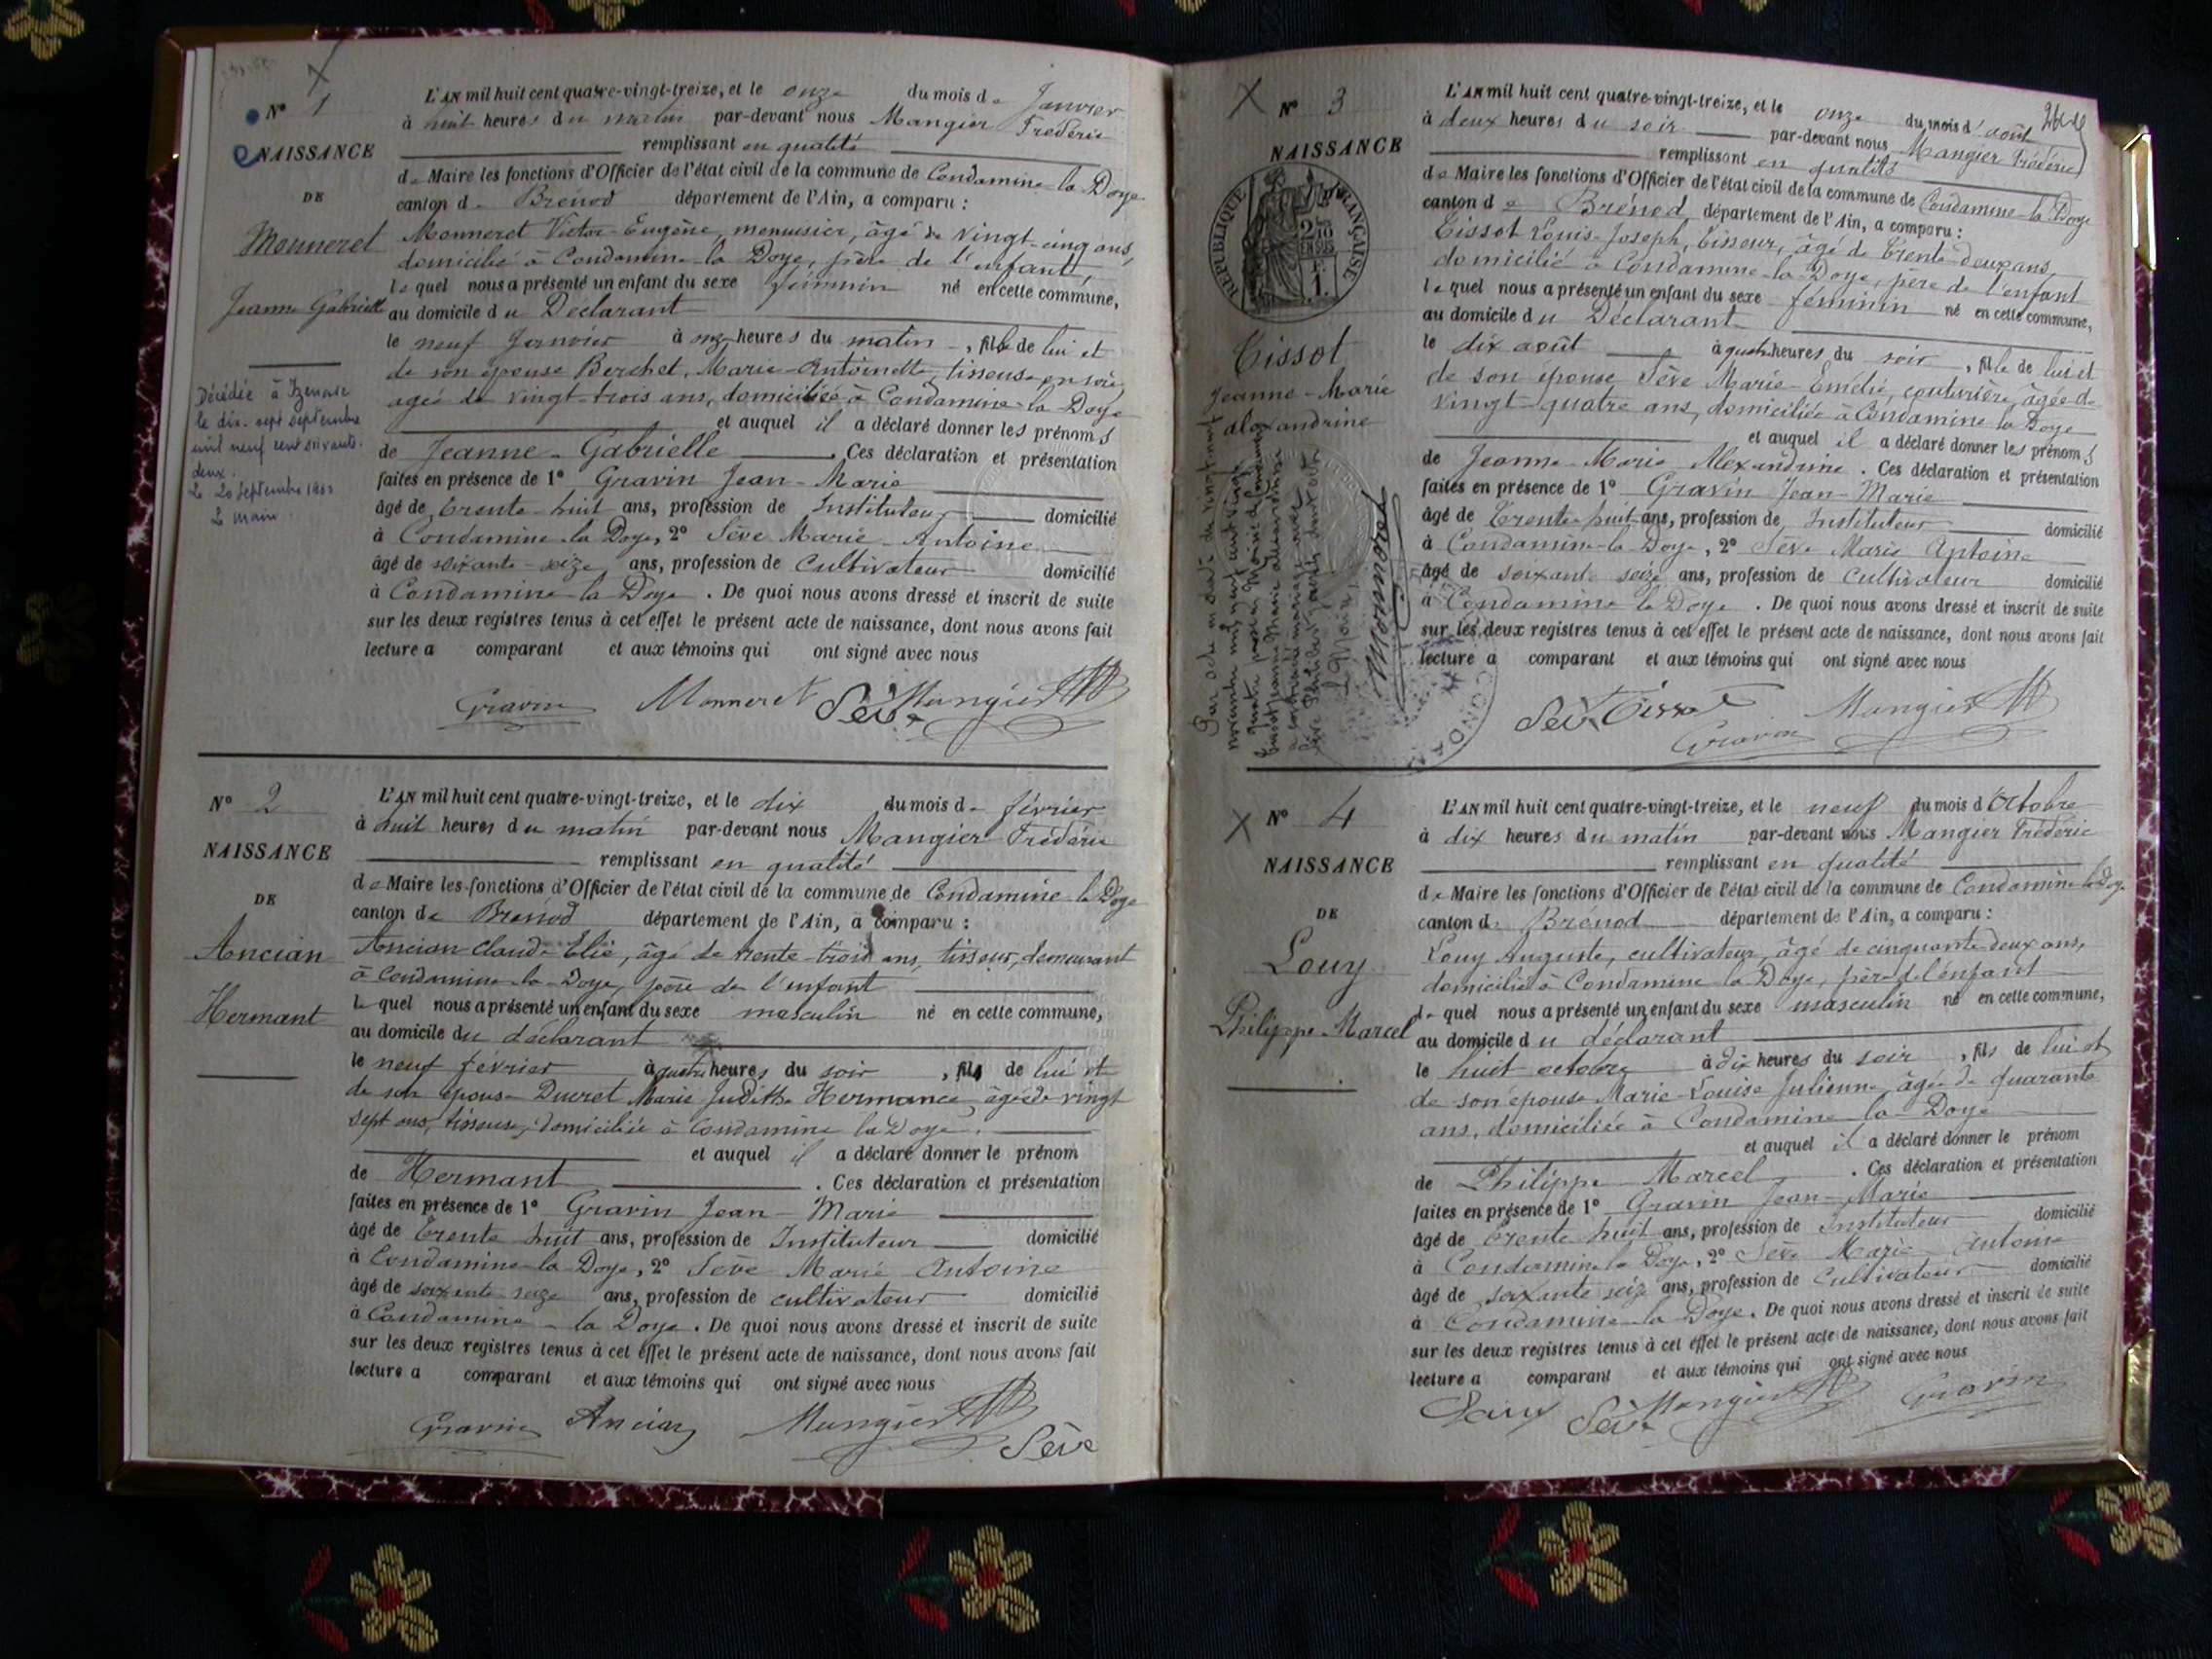 N° 1
NAISSANCE
DE
Monneret
Jeanne Gabrielle
Décédée à Izernore
le dix-sept septembre
mil neuf cent soixante-
deux.
Le 20 septembre 1962
Le maire
L'AN mil huit cent quatre-vingt-treize, et le onze du mois de Janvier
à huit heures du matin par-devant nous Mangier Frédéric
remplissant en qualité
de Maire les fonctions d'Officier de l'état civil de la commune de Condamine-la-Doye
canton de Brénod département de l'Ain, a comparu :
Monneret Victor-Eugène, menuisier, âgé de vingt-cinq ans,
domicilié à Condamine-la-Doye, père de l'enfant,
lequel nous a présenté un enfant du sexe féminin né en cette commune,
au domicile du Déclarant
le neuf Janvier à onze heures du matin, fille de lui et
de son épouse Berchet, Marie-Antoinette, tisseuse en soie,
agée de vingt-trois ans, domiciliée à Condamine-la-Doye
et auquel il a déclaré donner les prénoms
de Jeanne-Gabrielle. Ces déclaration et présentation
faites en présence de 1° Gravin Jean-Marie
âgé de trente-huit ans, profession de Instituteur domicilié
à Condamine-la-Doye, 2° Sève Marie-Antoine
âgé de soixante-seize ans, profession de Cultivateur domicilié
à Condamine-la-Doye. De quoi nous avons dressé et inscrit de suite
sur les deux registres tenus à cet effet le présent acte de naissance, dont nous avons fait
lecture a comparant et aux témoins qui ont signé avec nous
Gravin Monneret Sève Mangier
N° 2
NAISSANCE
DE
Ancian
Hermant
L'AN mil huit cent quatre-vingt-treize, et le dix du mois de février
à huit heures du matin par-devant nous Mangier Frédéric
remplissant en qualité
de Maire les fonctions d'Officier de l'état civil de la commune de Condamine la Doye
canton de Brénod département de l'Ain, a comparu :
Ancian Claude Elie, âgé de trente-trois ans, tisseur, demeurant
à Condamine-la-Doye, père de l'enfant
lequel nous a présenté un enfant du sexe masculin né en cette commune,
au domicile du déclarant
le neuf février à quatre heures du soir, fils de lui et
de son épouse Ducret Marie Judith Hermance, âgée de vingt
sept ans, tisseuse, domiciliée à Condamine la Doye.
et auquel il a déclaré donner le prénom
de Hermant. Ces déclaration et présentation
faites en présence de 1° Gravin Jean-Marie
âgé de trente huit ans, profession de Instituteur domicilié
à Condamine-la Doye, 2° Sève Marie Antoine
âgé de soixante seize ans, profession de cultivateur domicilié
à Condamine-la Doye. De quoi nous avons dressé et inscrit de suite
sur les deux registres tenus à cet effet le présent acte de naissance, dont nous avons fait
lecture a comparant et aux témoins qui ont signé avec nous
Gravin Ancian Mangier Sève
N° 3
NAISSANCE
RÉPUBLIQUE FRANÇAISE
2/10 EN SUS
1 F.
Tissot
Jeanne-Marie
alexandrine
L'AN mil huit cent quatre-vingt-treize, et le onze du mois d'août
à deux heures du soir par-devant nous Mangier Frédéric
remplissant en qualité
de Maire les fonctions d'Officier de l'état civil de la commune de Condamine-la-Doye
canton de Brénod, département de l'Ain, a comparu :
Tissot Louis-Joseph, tisseur, âgé de trente-deux ans,
domicilié à Condamine-la-Doye, père de l'enfant
lequel nous a présenté un enfant du sexe féminin né en cette commune,
au domicile du Déclarant
le dix août à quatre heures du soir, fille de lui et
de son épouse Sève Marie-Emélie, couturière, âgée de
vingt-quatre ans, domiciliée à Condamine la Doye
et auquel il a déclaré donner les prénoms
de Jeanne-Marie Alexandrine. Ces déclaration et présentation
faites en présence de 1° Gravin Jean-Marie
âgé de trente-huit ans, profession de Instituteur domicilié
à Condamine-la-Doye, 2° Sève Marie Antoine
âgé de soixante seize ans, profession de cultivateur domicilié
à Condamine la Doye. De quoi nous avons dressé et inscrit de suite
sur les deux registres tenus à cet effet le présent acte de naissance, dont nous avons fait
lecture a comparant et aux témoins qui ont signé avec nous
Sève Tissot Mangier
Gravin
N° 4
NAISSANCE
DE
Louy
Philippe-Marcel
L'AN mil huit cent quatre-vingt-treize, et le neuf du mois d'Octobre
à dix heures du matin par-devant nous Mangier Frédéric
remplissant en qualité
de Maire les fonctions d'Officier de l'état civil de la commune de Condamine la Doye
canton de Brénod département de l'Ain, a comparu :
Louy Auguste, cultivateur, âgé de cinquante-deux ans,
domicilié à Condamine la Doye, père de l'enfant
lequel nous a présenté un enfant du sexe masculin né en cette commune,
au domicile du déclarant
le huit octobre à dix heures du soir, fils de lui et
de son épouse Marie-Louise Julienne, âgée de quarante
ans, domiciliée à Condamine-la-Doye
et auquel il a déclaré donner le prénom
de Philippe Marcel. Ces déclaration et présentation
faites en présence de 1° Gravin Jean-Marie
âgé de trente huit ans, profession de Instituteur domicilié
à Condamine la Doye, 2° Sève Marie-Antoine
âgé de soixante seize ans, profession de Cultivateur domicilié
à Condamine-la Doye. De quoi nous avons dressé et inscrit de suite
sur les deux registres tenus à cet effet le présent acte de naissance, dont nous avons fait
lecture a comparant et aux témoins qui ont signé avec nous
Louy Sève Mangier Gravin